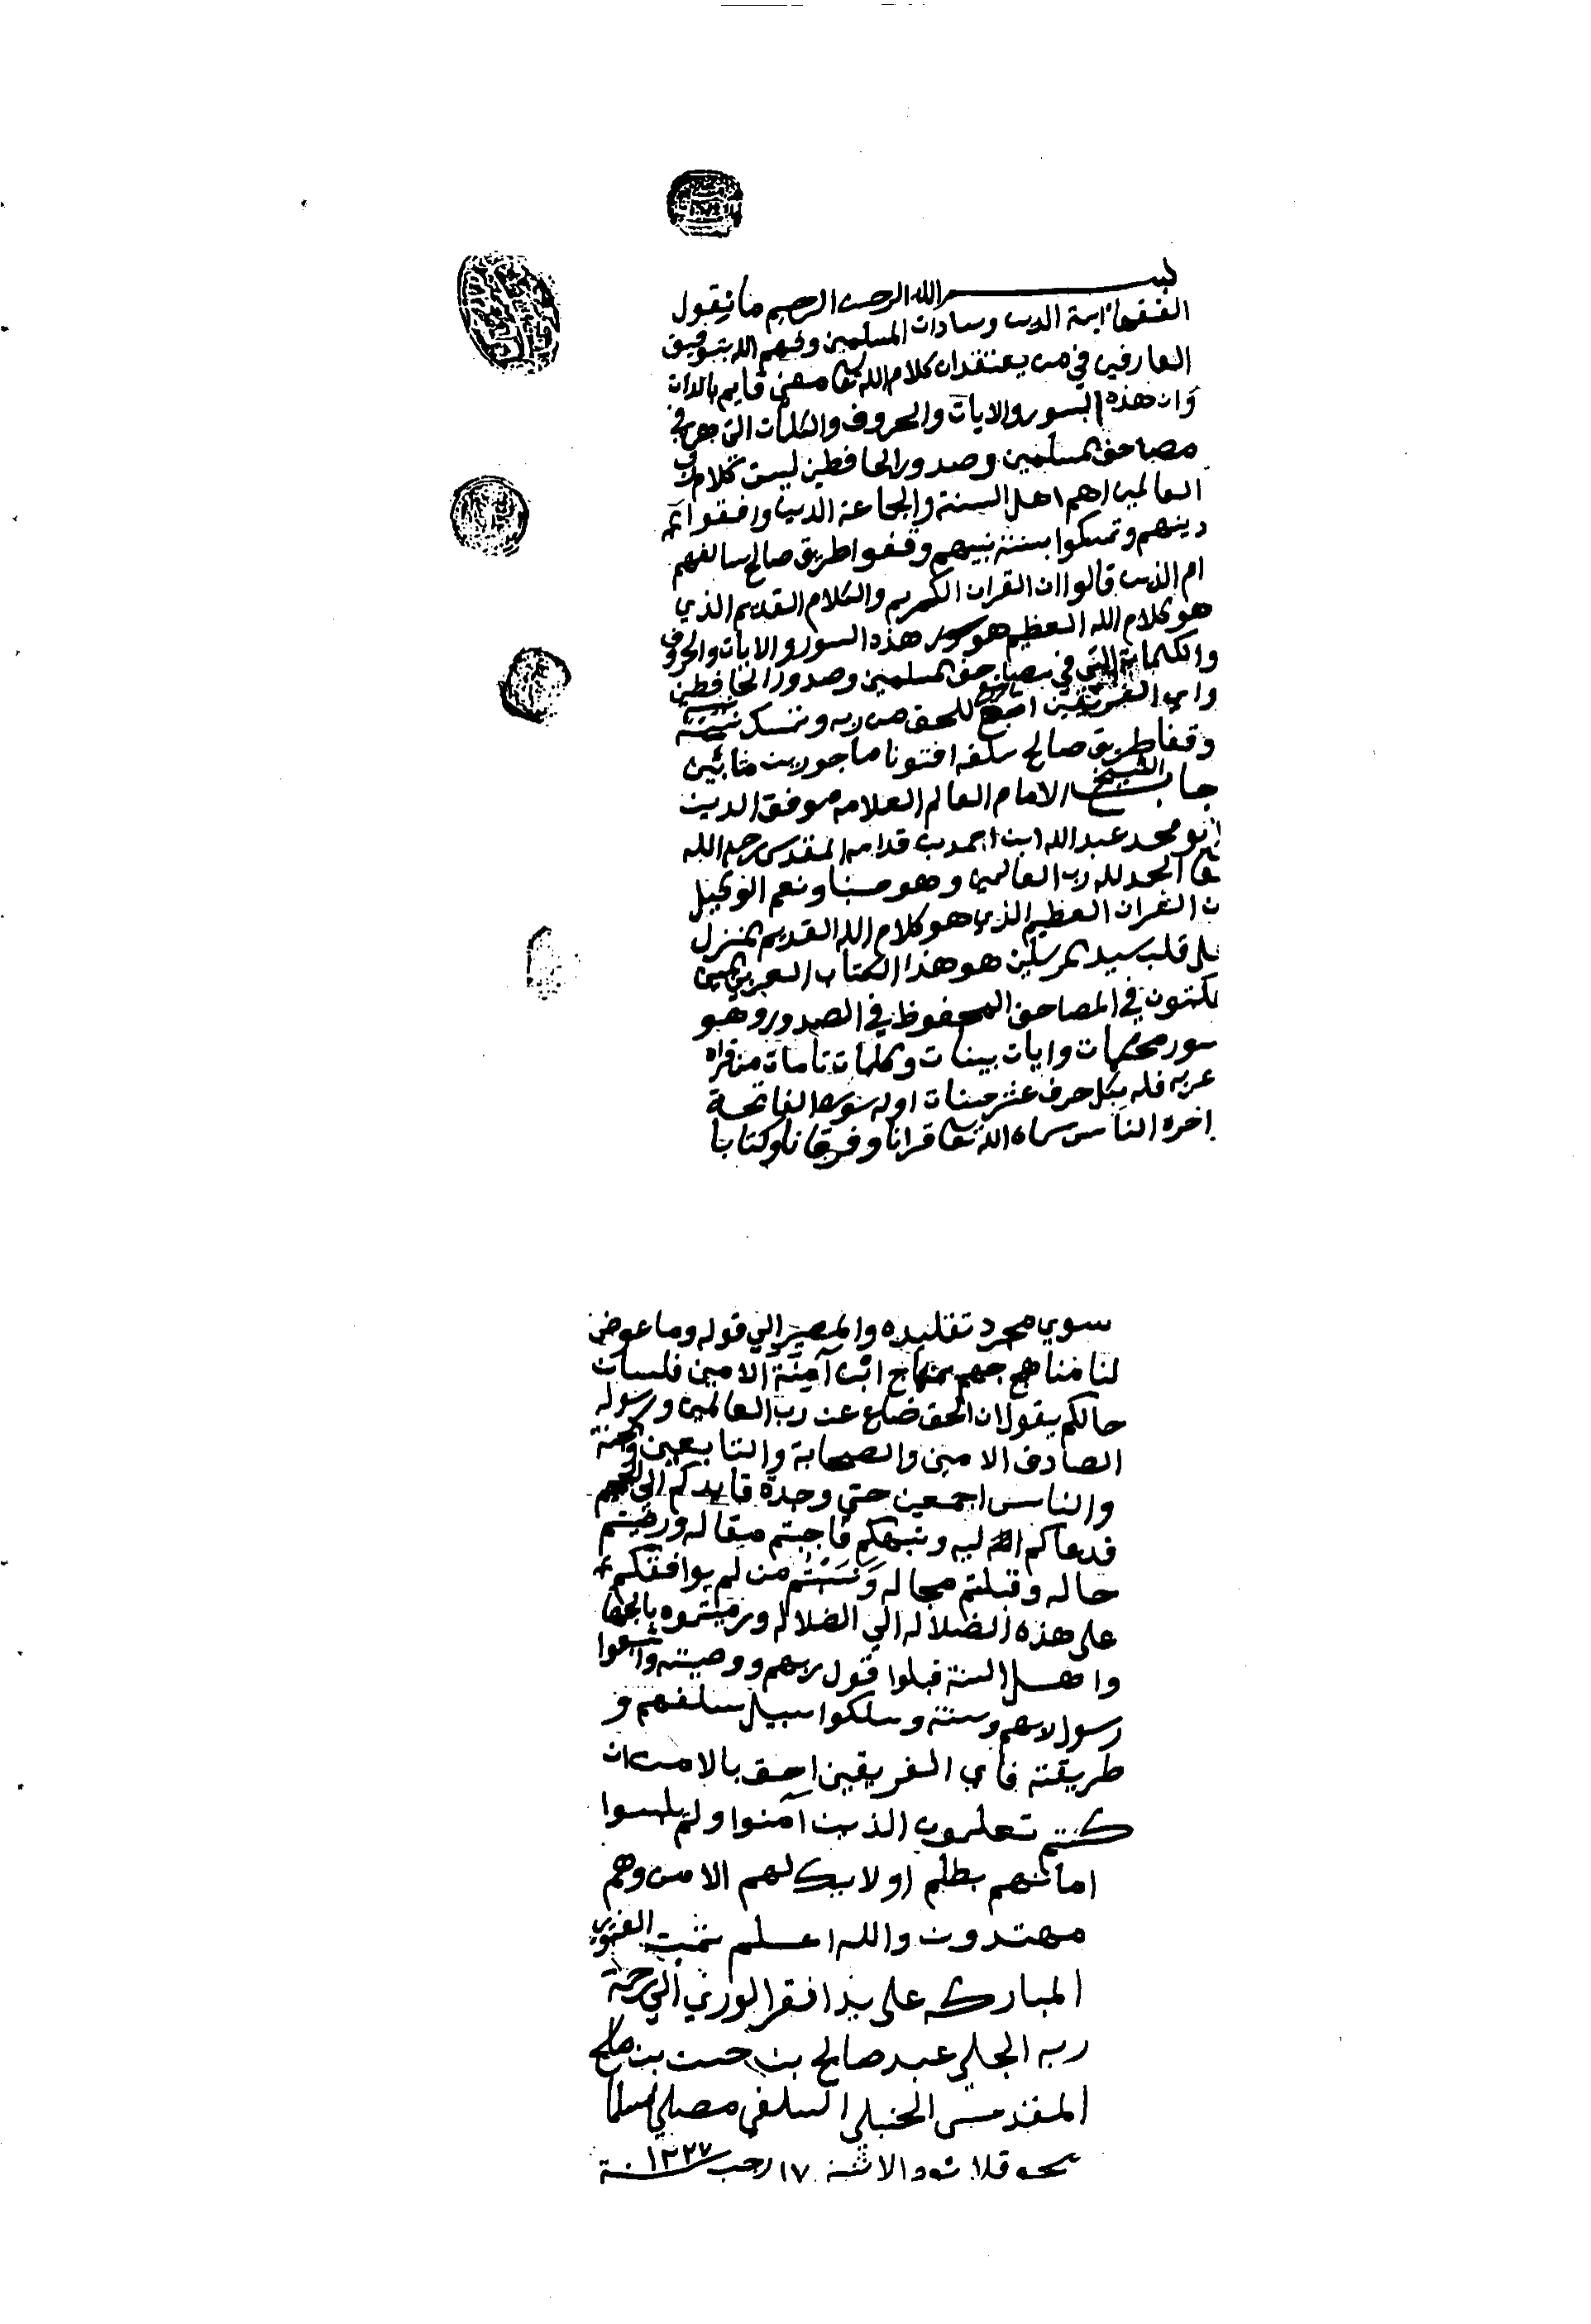 بسم الله الرحمن الرحيم ما يقول
الفقها ايمة الدين وسادات المسلمين وفقهم الله بتوفيق
العارفين في من يعتقد ان كلام الله تعالى معنى قايم بالذات
وان هذه السور والايات والحروف والكلمات التي هي في
مصاحف المسلمين وصدور الحافظين ليست كلام رب
العالمين اهم اهل السنة والجماعة الدين وافقوا
دينهم وتمسكوا بسنة نبيهم وقفوا طريق صالح سالفهم
ام الذين قالوا ان القران الكريم والكلام القديم الذي
هو كلام الله العظيم هو هذه السور والايات والحروف
والكلمات التي في مصاحف المسلمين وصدور الحافظين
واي الفريقين اتبع للحق من ربه وتمسك بسنة نبيه
وقفا طريق صالح سلفه افتونا ماجورين مثابين
جاب الشيخ الامام العالم العلامه موفق الدين
ابو محمد عبد الله ابن احمد بن قدامه المقدسي رحمه الله
تعا الحمد لله رب العالمين وهو حسبنا ونعم الوكيل
ن القران العظيم الذي هو كلام الله القديم المنزل
على قلب سيد المرسلين هو هذا الكتاب العربي المبين
مكتوب في المصاحف المحفوظ في الصدور وهو
سور محكمات وايات بينات وكلمات تامات من قراه
عربه فله بكل حرف عشر حسنات اوله سورة الفاتحة
اخره الناس سماه الله تعا قرانا وفرقانا وكتابا
سوي مجرد تقليده والمصير الي قوله وما عوض
لنا منا هج جهم بمنهاج ابن آمنة الامين فلسان
حالكم يقول ان الحق ضاع عن رب العالمين ورسوله
الصادق الامين والصحابة والتابعين
والناس اجمعين حتي وجده قايدكم الي الجحيم
فدعاكم اليه ونبهكم فاجبتم مقاله ورضيتم
حاله وقبلتم محاله ونسبتم من لم يوافقكم
على هذه الضلاله الي الضلاله ورميتموه بالجهاله
واهل السنة قبلوا قول ربهم ووصيته واتبعوا
رسول ربهم وسنته وسلكوا سبيل سلفهم و
طريقته فاي الفريقين احق بالامن ان
كنتم تعلمون الذين آمنوا ولم يلبسوا
امانهم بظلم اولايك لهم الامن وهم
مهتدون والله اعلم تمت الفتوي
المباركه على يد افقر الوري الي رحمة
ربه الجلي عبد صالح بن حسن بن صالح
المقدسي الحنبلي السلفي مصلي مسلما
الاثنين ١٧ رجب سنة ١٣٢٧